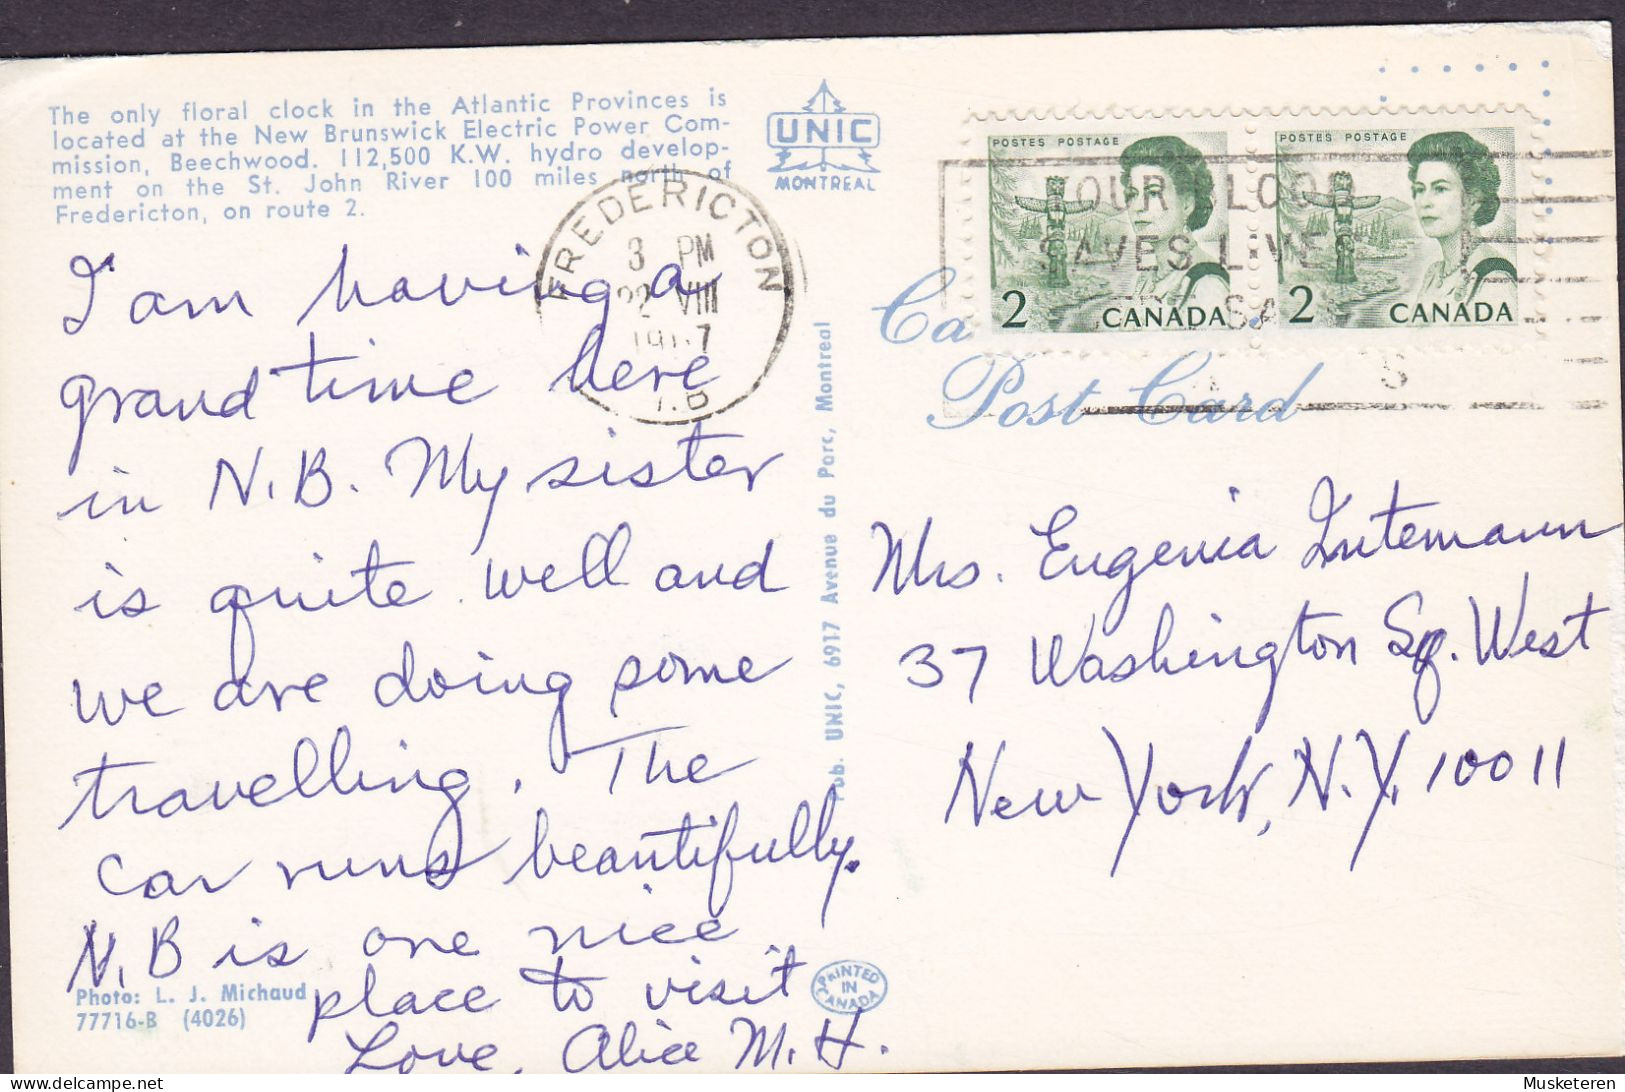 The only floral clock in the Atlantic Provinces is
located at the New Brunswick Electric Power Com-
mission, Beechwood. 112,500 K.W. hydro develop-
ment on the St. John River 100 miles north of
Fredericton, on route 2.
UNIC
MONTREAL
FREDERICTON
3 PM
22 VIII
N.B
POSTES POSTAGE
2 CANADA
POSTES POSTAGE
2 CANADA
YOUR BLOOD
SAVES LIVES
Post Card
I am having a
grand time here
in N.B. My sister
is quite well and
we are doing some
travelling. The
car runs beautifully.
N.B is one nice
place to visit
Love, Alice M. H.
Photo: L. J. Michaud
77716-B (4026)
Pub. UNIC, 6917 Avenue du Parc, Montreal
PRINTED
IN
CANADA
Mrs. Eugenia Intemann
37 Washington Sq. West
New York, N.Y. 10011
Musketeren